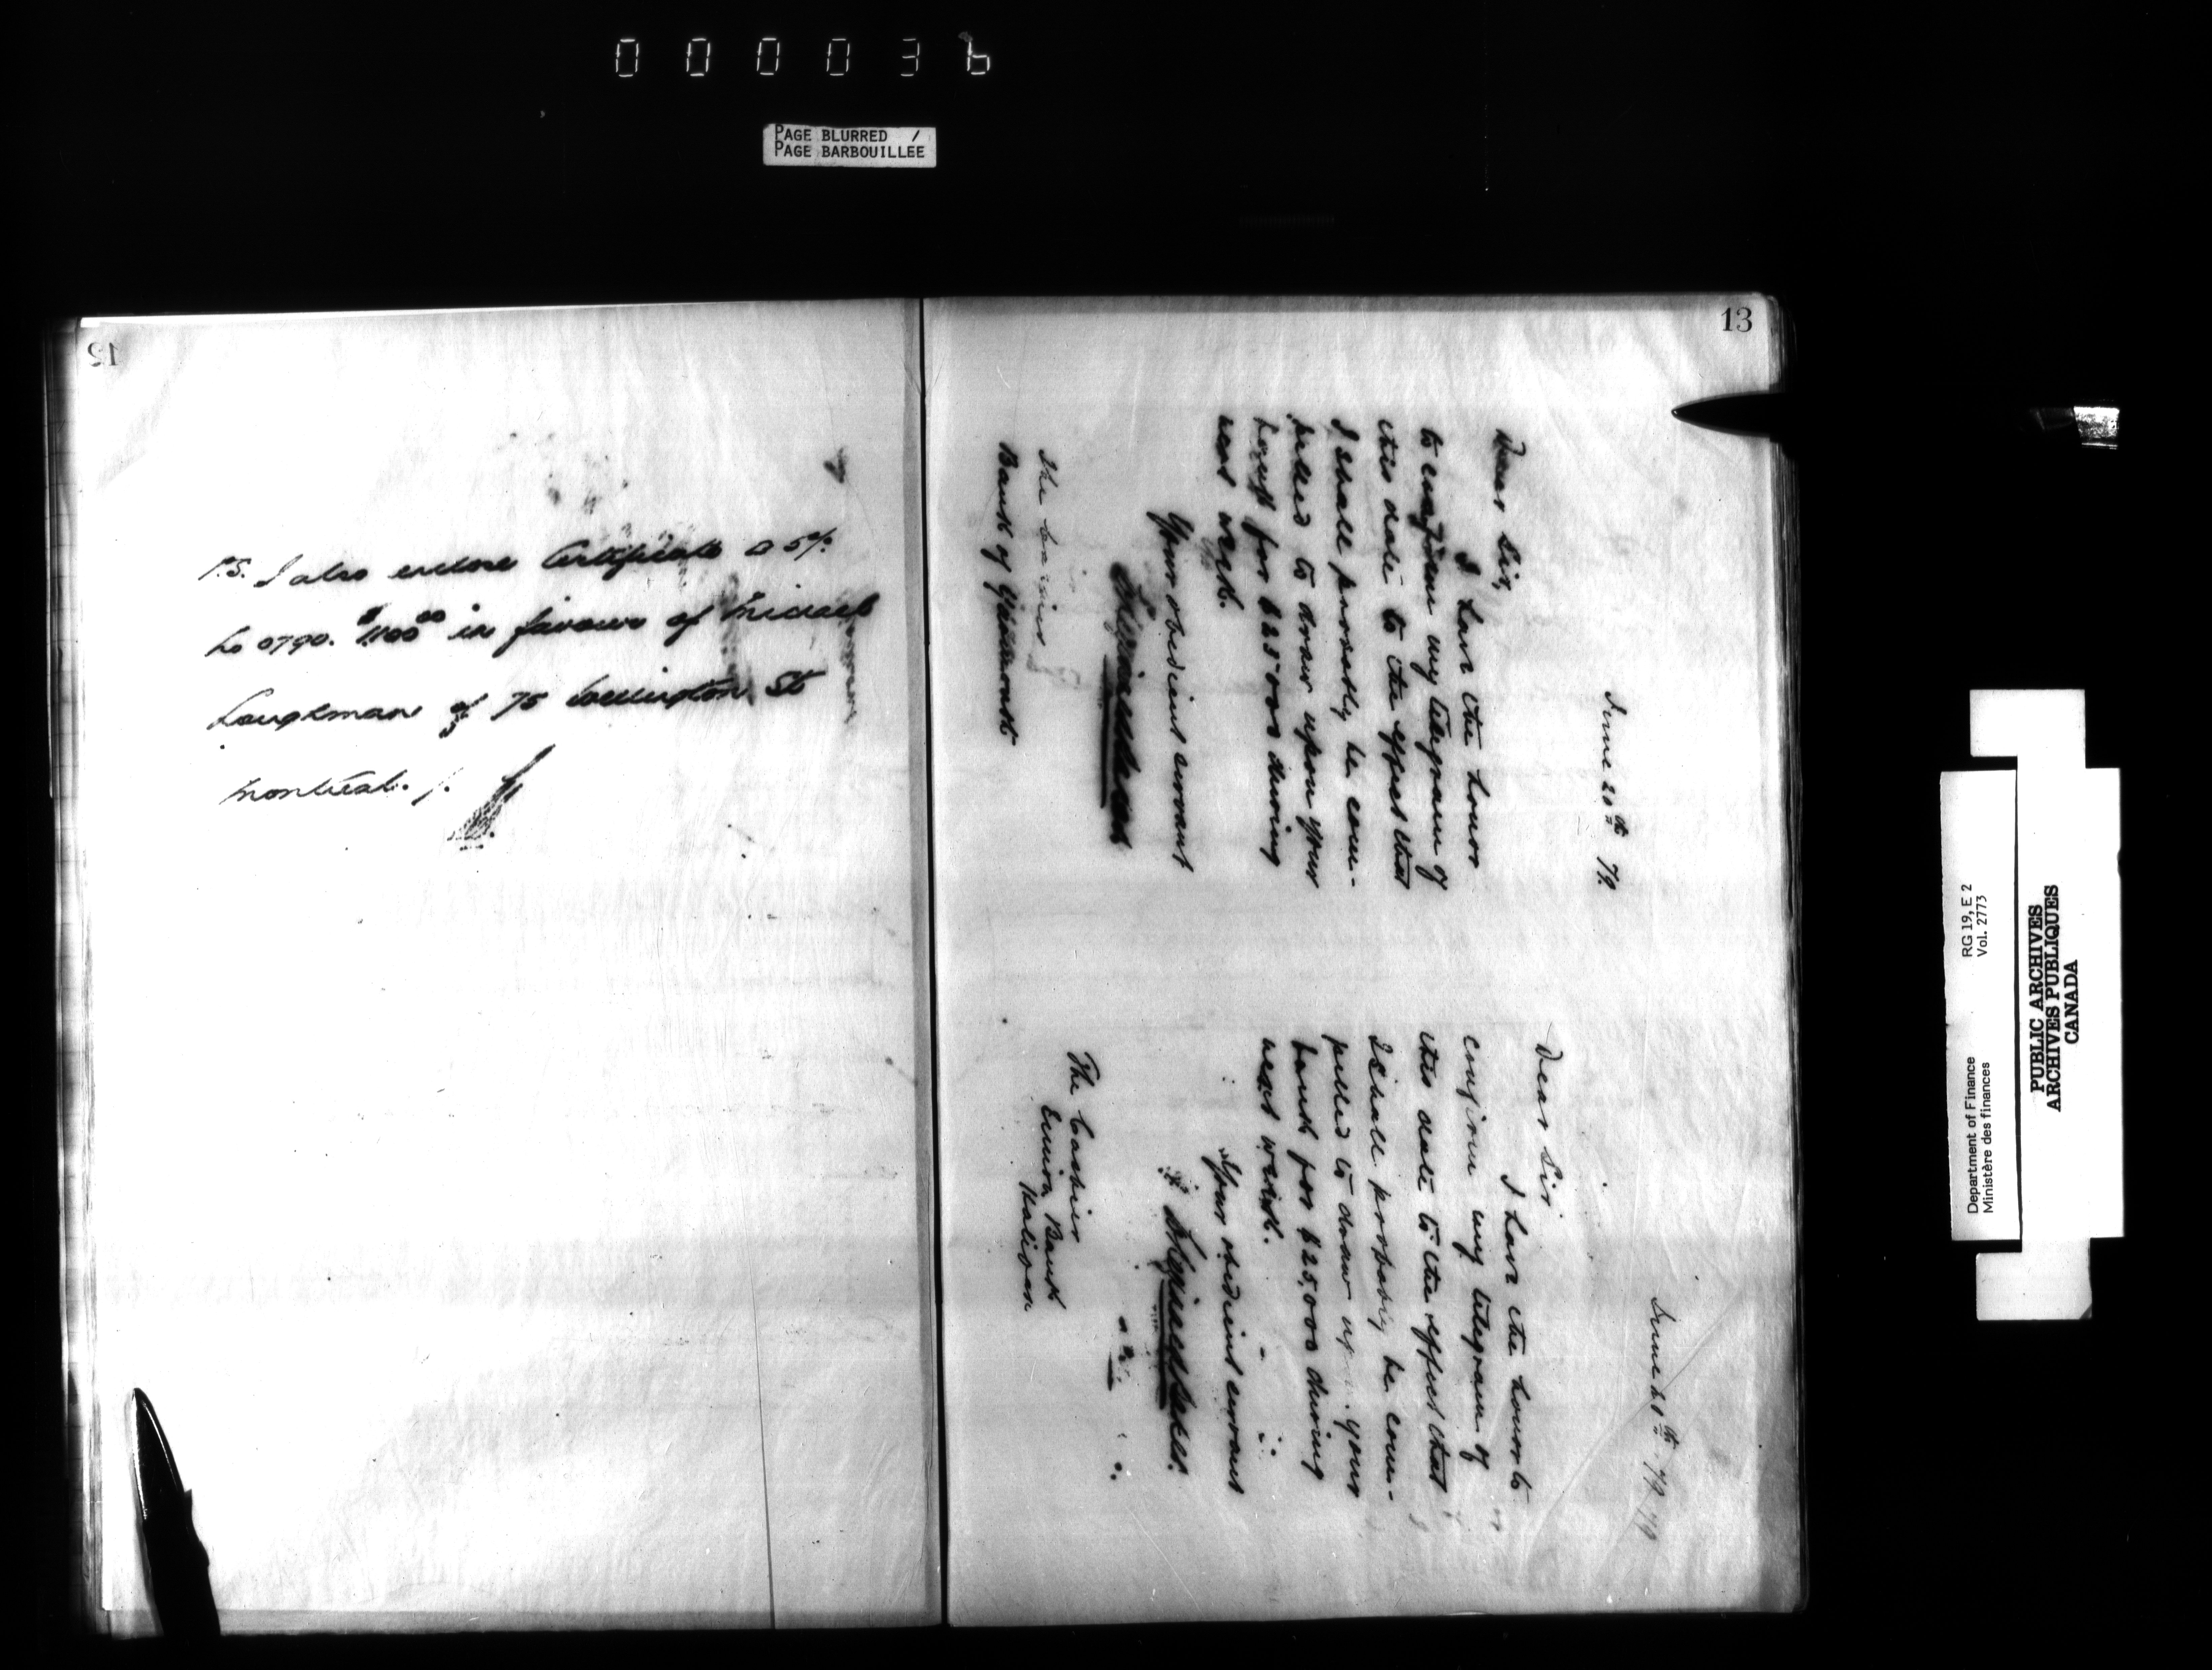 00003b
PAGE BLURRED /
PAGE BARBOUILLEE
12
P.S. I also enclose Certificate @ 5%
No 0790. $1100.00 in favour of Michael
Loughman of 75 Wellington St
Montreal.
13
June 20th 79
Dear Sir,
I have the honor
to confirm my telegram of
this date to the effect that
I shall probably be com-
pelled to draw upon your
bank for $25000 during
next week.
Your obedient servant
The Cashier
Bank of Yarmouth
June 20th 79
Dear Sir
I have the honor to
confirm my telegram of
this date to the effect that
I shall probably be com-
pelled to draw up your
bank for $25,000 during
next week.
Your obedient servant
The Cashier
Union Bank
Halifax
Department of Finance
Ministère des finances
RG 19, E 2
Vol. 2773
PUBLIC ARCHIVES
ARCHIVES PUBLIQUES
CANADA